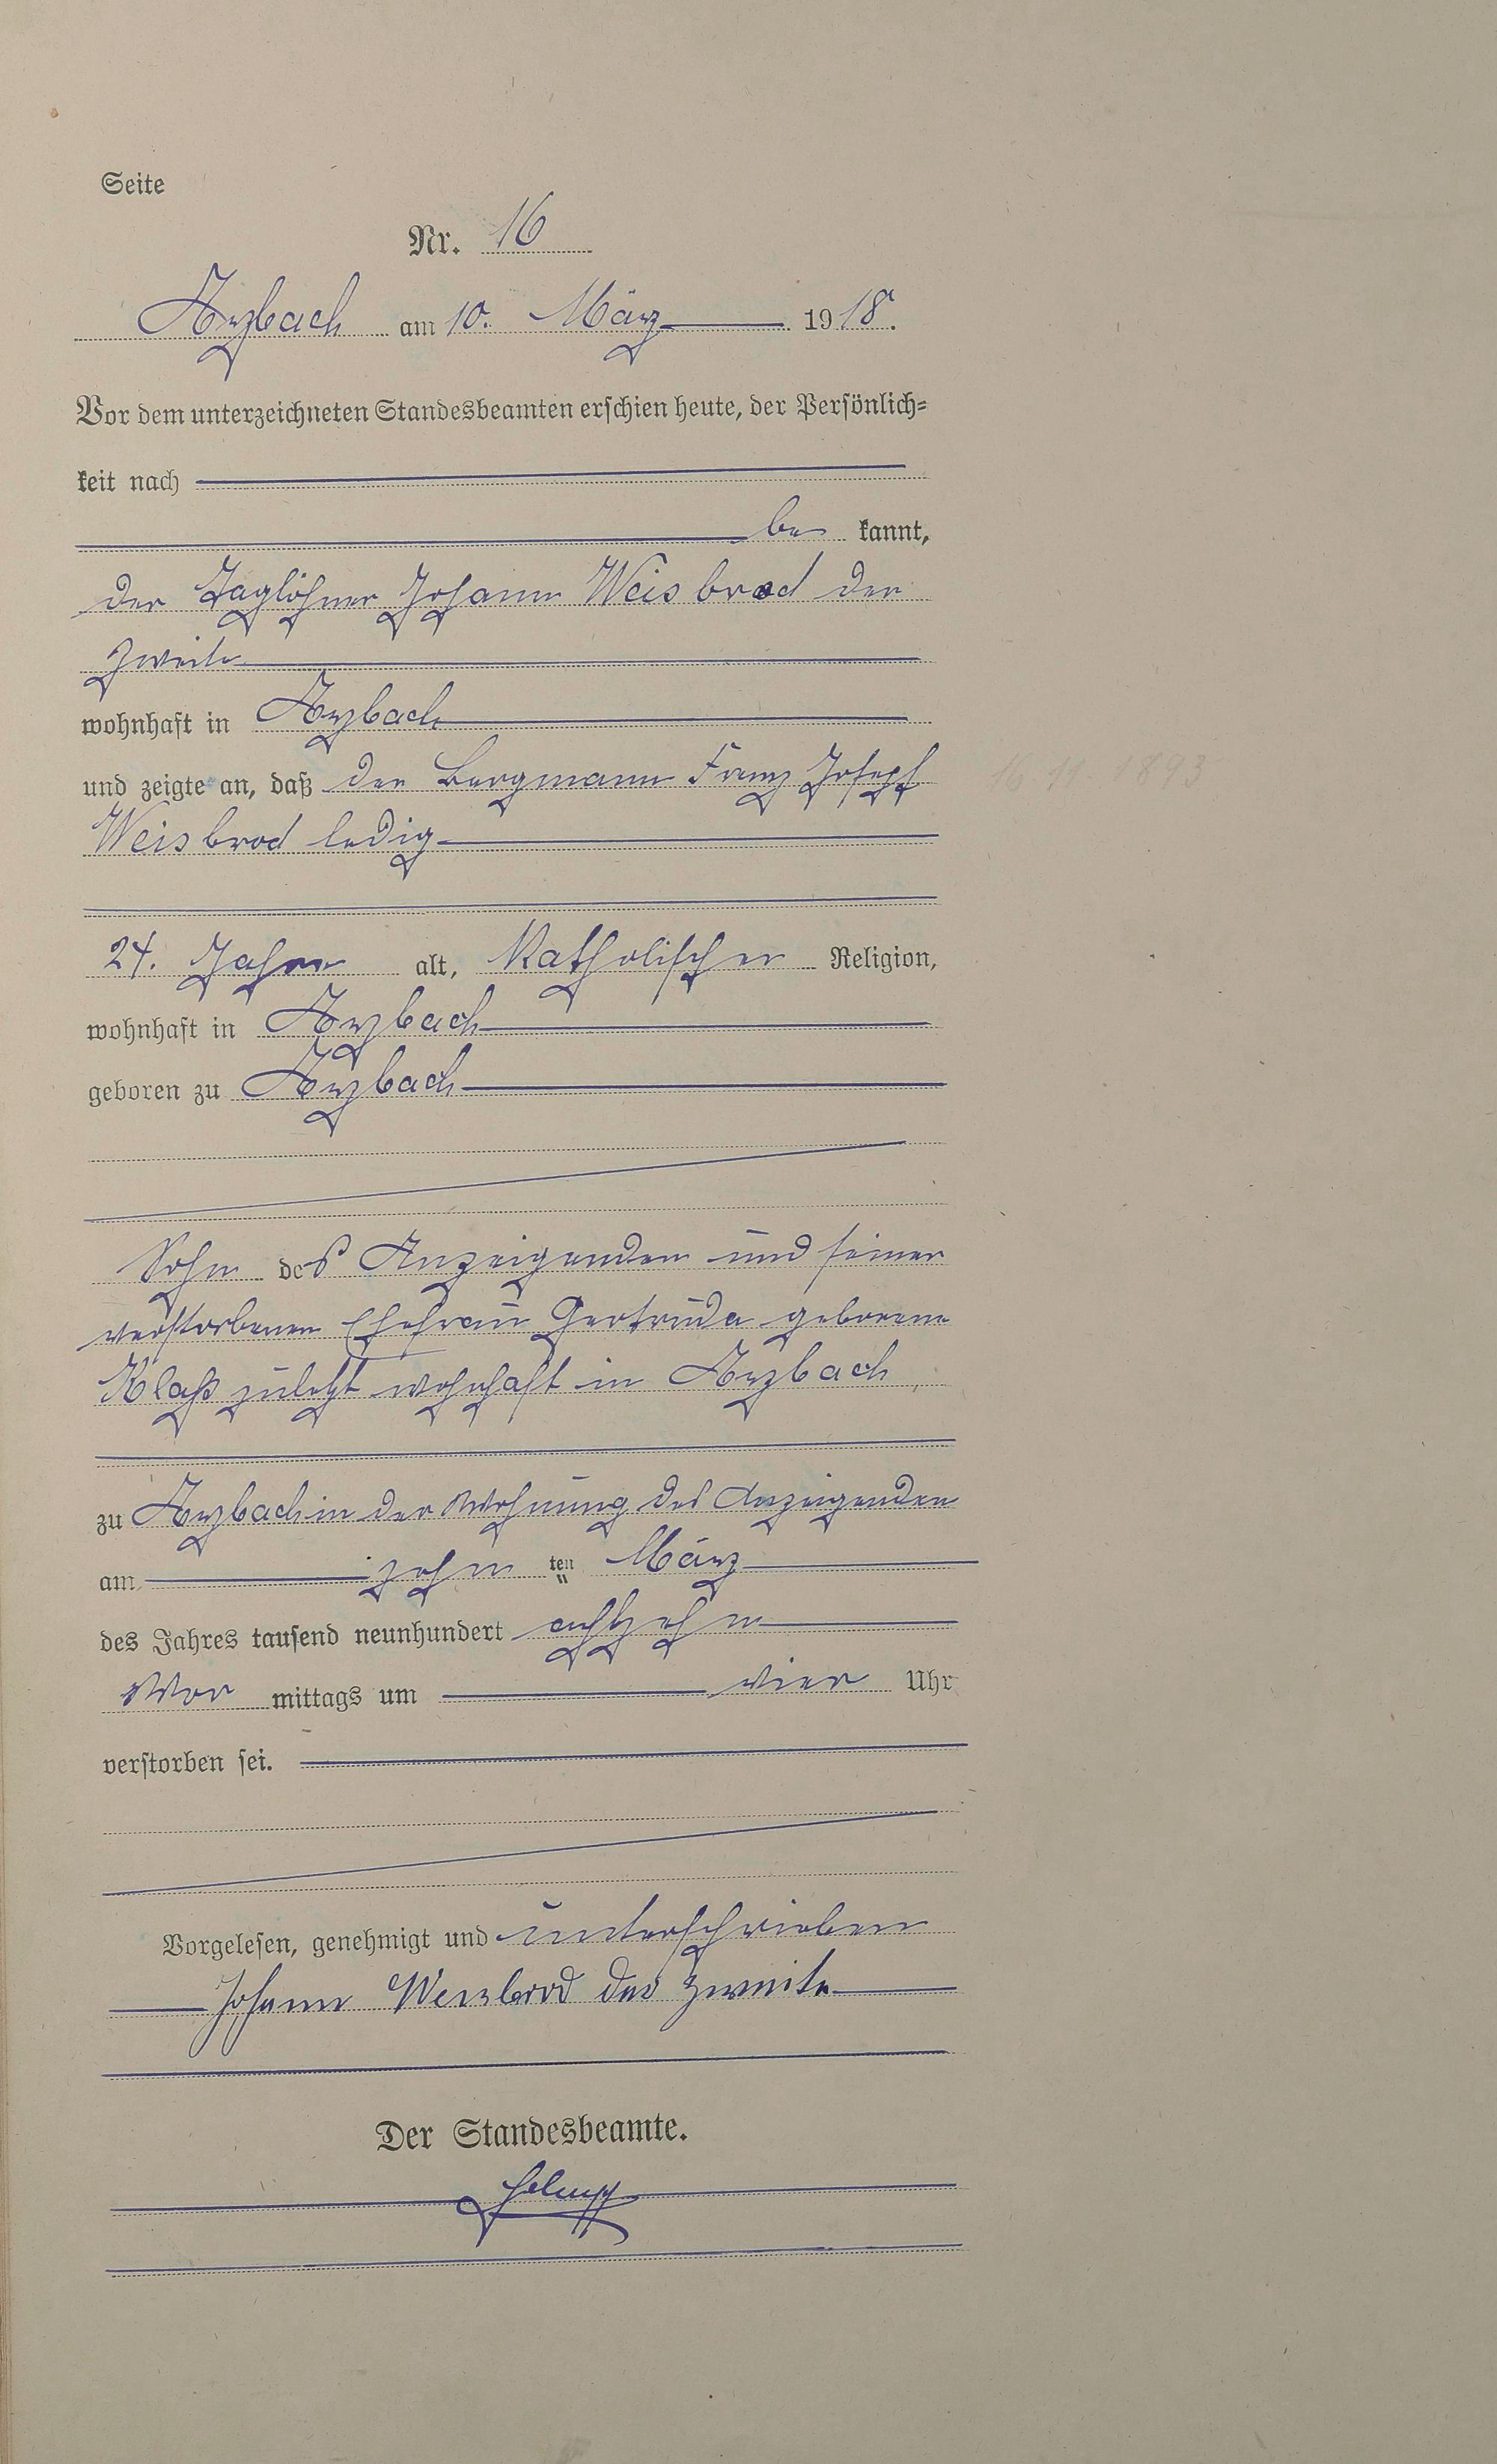 Seite
Nr. 16
Arzbach am 10. März 1918.
Vor dem unterzeichneten Standesbeamten erschien heute, der Persönlich=
keit nach
be kannt,
der Taglöhner Johann Weisbrod der
zweite
wohnhaft in Arzbach
und zeigte an, daß der Bergmann Franz Joseph
16.11 1893
Weisbrod ledig
24. Jahre alt, Katholischer Religion,
wohnhaft in Arzbach
geboren zu Arzbach
Sohn des Anzeigenden und seiner
verstorbenen Ehefrau Gertrude geborene
Klaß zuletzt wohnhaft in Arzbach
zu Arzbach in der Wohnung des Anzeigenden
am zehn ten März
des Jahres tausend neunhundert achtzehn
Vor mittags um vier Uhr
verstorben sei.
Vorgelesen, genehmigt und unterschrieben
Johann Weisbrod der zweite
Der Standesbeamte.